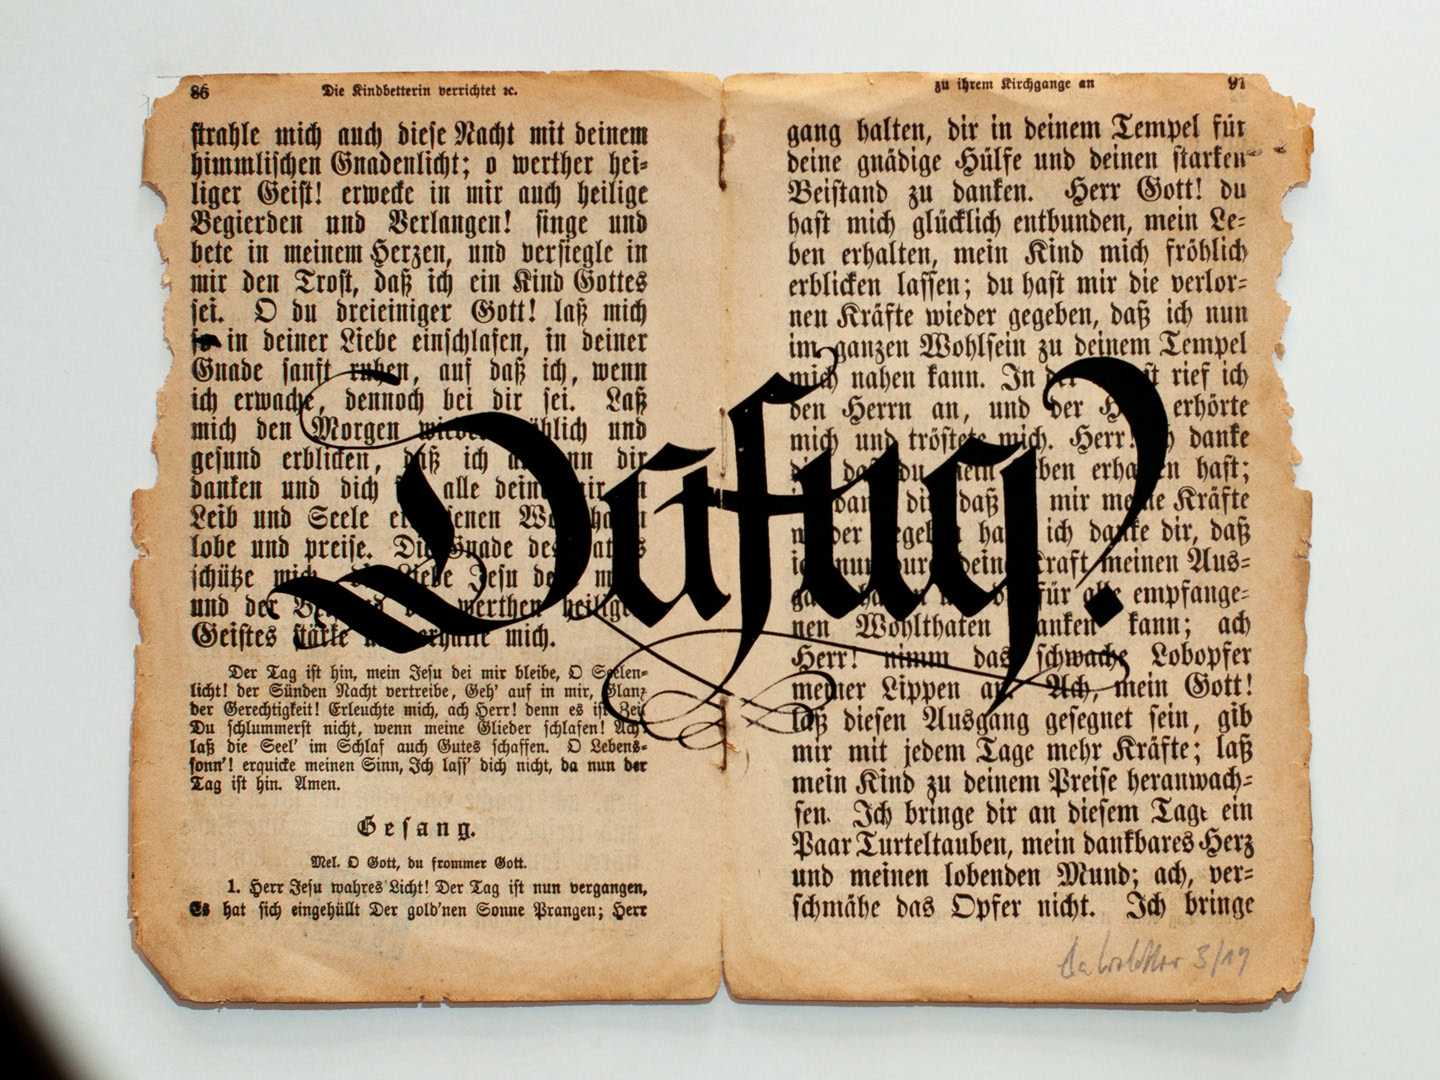 86 Die Kindbetterin verrichtet ꝛc.
ſtrahle mich auch dieſe Nacht mit deinem
himmliſchen Gnadenlicht; o werther hei=
liger Geiſt! erwecke in mir auch heilige
Begierden und Verlangen! ſinge und
bete in meinem Herzen, und verſiegle in
mir den Troſt, daß ich ein Kind Gottes
ſei. O du dreieiniger Gott! laß mich
ſo in deiner Liebe einſchlafen, in deiner
Gnade ſanft ruhen, auf daß ich, wenn
ich erwache, dennoch bei dir ſei. Laß
mich den Morgen wieder und
geſund erblicken, daß ich dir
danken und dich alle
Leib und Seele
lobe und preiſe. Die Gnade des
ſchütze mich, Liebe Jeſu
und der werthen heiligen
Geiſtes ſtärke mich.
Der Tag iſt hin, mein Jeſu bei mir bleibe, O Seelen=
licht! der Sünden Nacht vertreibe, Geh' auf in mir, Glanz
der Gerechtigkeit! Erleuchte mich, ach Herr! denn es iſt Zeit
Du ſchlummerſt nicht, wenn meine Glieder ſchlafen! Ach,
laß die Seel' im Schlaf auch Gutes ſchaffen. O Lebens=
ſonn'! erquicke meinen Sinn, Ich laſſ' dich nicht, da nun der
Tag iſt hin. Amen.
Geſang.
Mel. O Gott, du frommer Gott.
1. Herr Jeſu wahres Licht! Der Tag iſt nun vergangen,
Es hat ſich eingehüllt Der gold'nen Sonne Prangen; Herr
Dafuq?
zu ihrem Kirchgange an
gang halten, dir in deinem Tempel für
deine gnädige Hülfe und deinen ſtarken
Beiſtand zu danken. Herr Gott! du
haſt mich glücklich entbunden, mein Le=
ben erhalten, mein Kind mich fröhlich
erblicken laſſen; du haſt mir die verlor=
nen Kräfte wieder gegeben, daß ich nun
im ganzen Wohlſein zu deinem Tempel
mich nahen kann. In der rief ich
den Herrn an, und der erhörte
mich und tröſtete mich. Herr! danke
daß du mein erhalten haſt;
daß mir meine Kräfte
ich danke dir, daß
Kraft meinen Aus=
für alle empfange=
nen Wohlthaten danken kann; ach
Herr! nimm das ſchwache Lobopfer
meiner Lippen an. Ach, mein Gott!
laß dieſen Ausgang geſegnet ſein, gib
mir mit jedem Tage mehr Kräfte; laß
mein Kind zu deinem Preiſe heranwach=
ſen. Ich bringe dir an dieſem Tage ein
Paar Turteltauben, mein dankbares Herz
und meinen lobenden Mund; ach, ver=
ſchmähe das Opfer nicht. Ich bringe
3/19